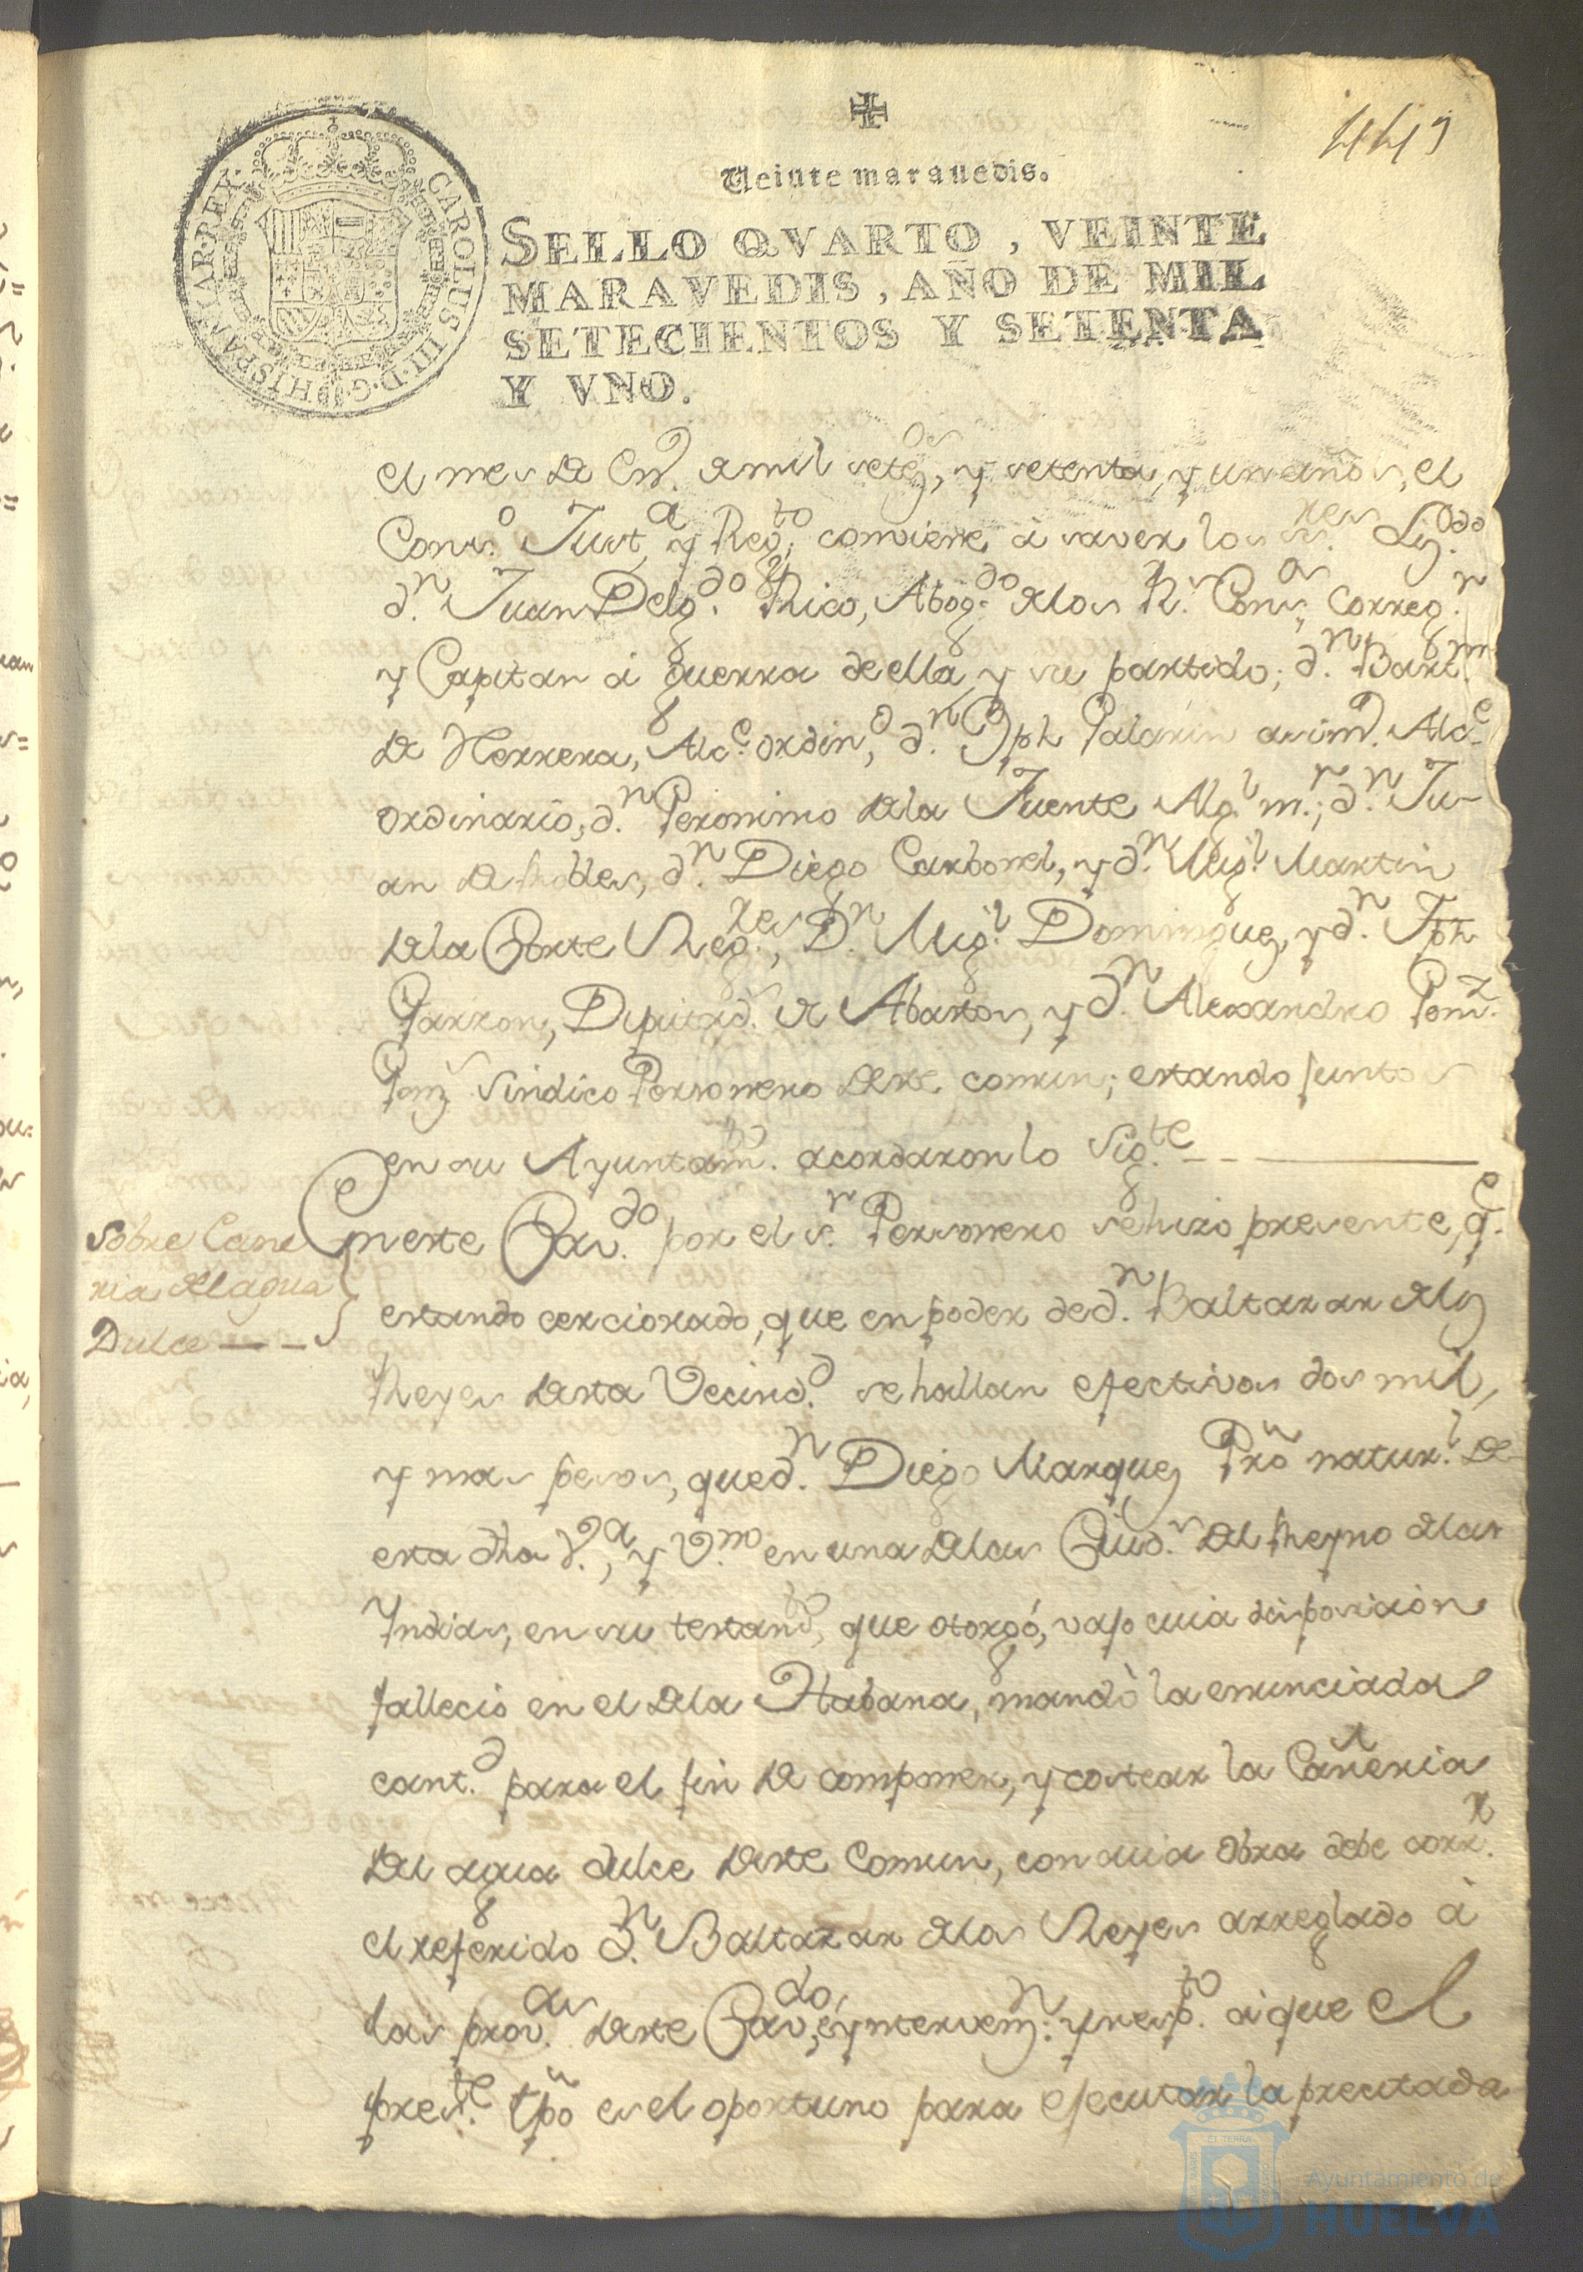 449
Veinte maravedis.
CAROLUS III·D·G·HISPANIAR·REX·
SELLO QVARTO, VEINTE
MARAVEDIS, AÑO DE MIL
SETECIENTOS Y SETENTA
Y VNO.
el mes de En.º de mil seteˢ, y setenta, y un años, el
Cons.º Just.ª y Reg.to conviene à saver los s.res Liz.do
d.n Juan Delg.do Rico, Abog.do de los R.s Cons.os Correg.r
y Capitan à guerra de ella, y su partido; d.n Bart.me
de Herrera, Alc.e ordin.º, d.n Jph Palarin asim.º Alc.e
ordinario, d.n Geronimo de la Fuente Alg.l m.r; d.n Ju-
an de Robles, d.n Diego Carbonel, y d.n Mig.l Martin
de la Corte Reg.res, D.n Mig.l Dominguez, y d.n Jph
Garzon, Diputad.s de Abastos, y d.n Alexandro
Sindico Personero deste comun; estando juntos
en su Ayuntam.to acordaron lo sig.te
Sobre Cañe
ria del agua
Dulce
En este Cav.do por el s.r Personero se hizo presente, q.e
estando cerciorado, que en poder de d.n Baltazar de los
Reyes desta Vecind.d se hallan efectivos dos mil,
y mas pesos, que d.n Diego Marquez Prõ natur.l de
esta dha V.ª, y V.no en una de las Ciud.s del Reyno de las
Yndias, en su testam.to, que otorgó, vajo cuia disposicion
falleció en el de la Habana, mandò la enunciada
cant.d para el fin de componer, y costear la Cañeria
del agua dulce deste Comun, con cuia obra debe corr.r
el referido d.n Baltazar de los Reyes arreglado à
las prov.as deste Cav.do, é yntervenz.n: y resp.to à que el
pres.te tpõ es el oportuno para ejecutar la precitada
Ayuntamiento de
HUELVA